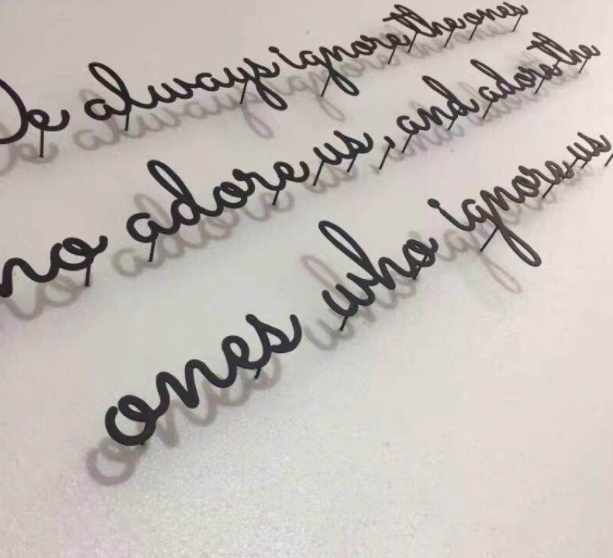 always ignore the ones
adore us, and adore the
ones who ignore us